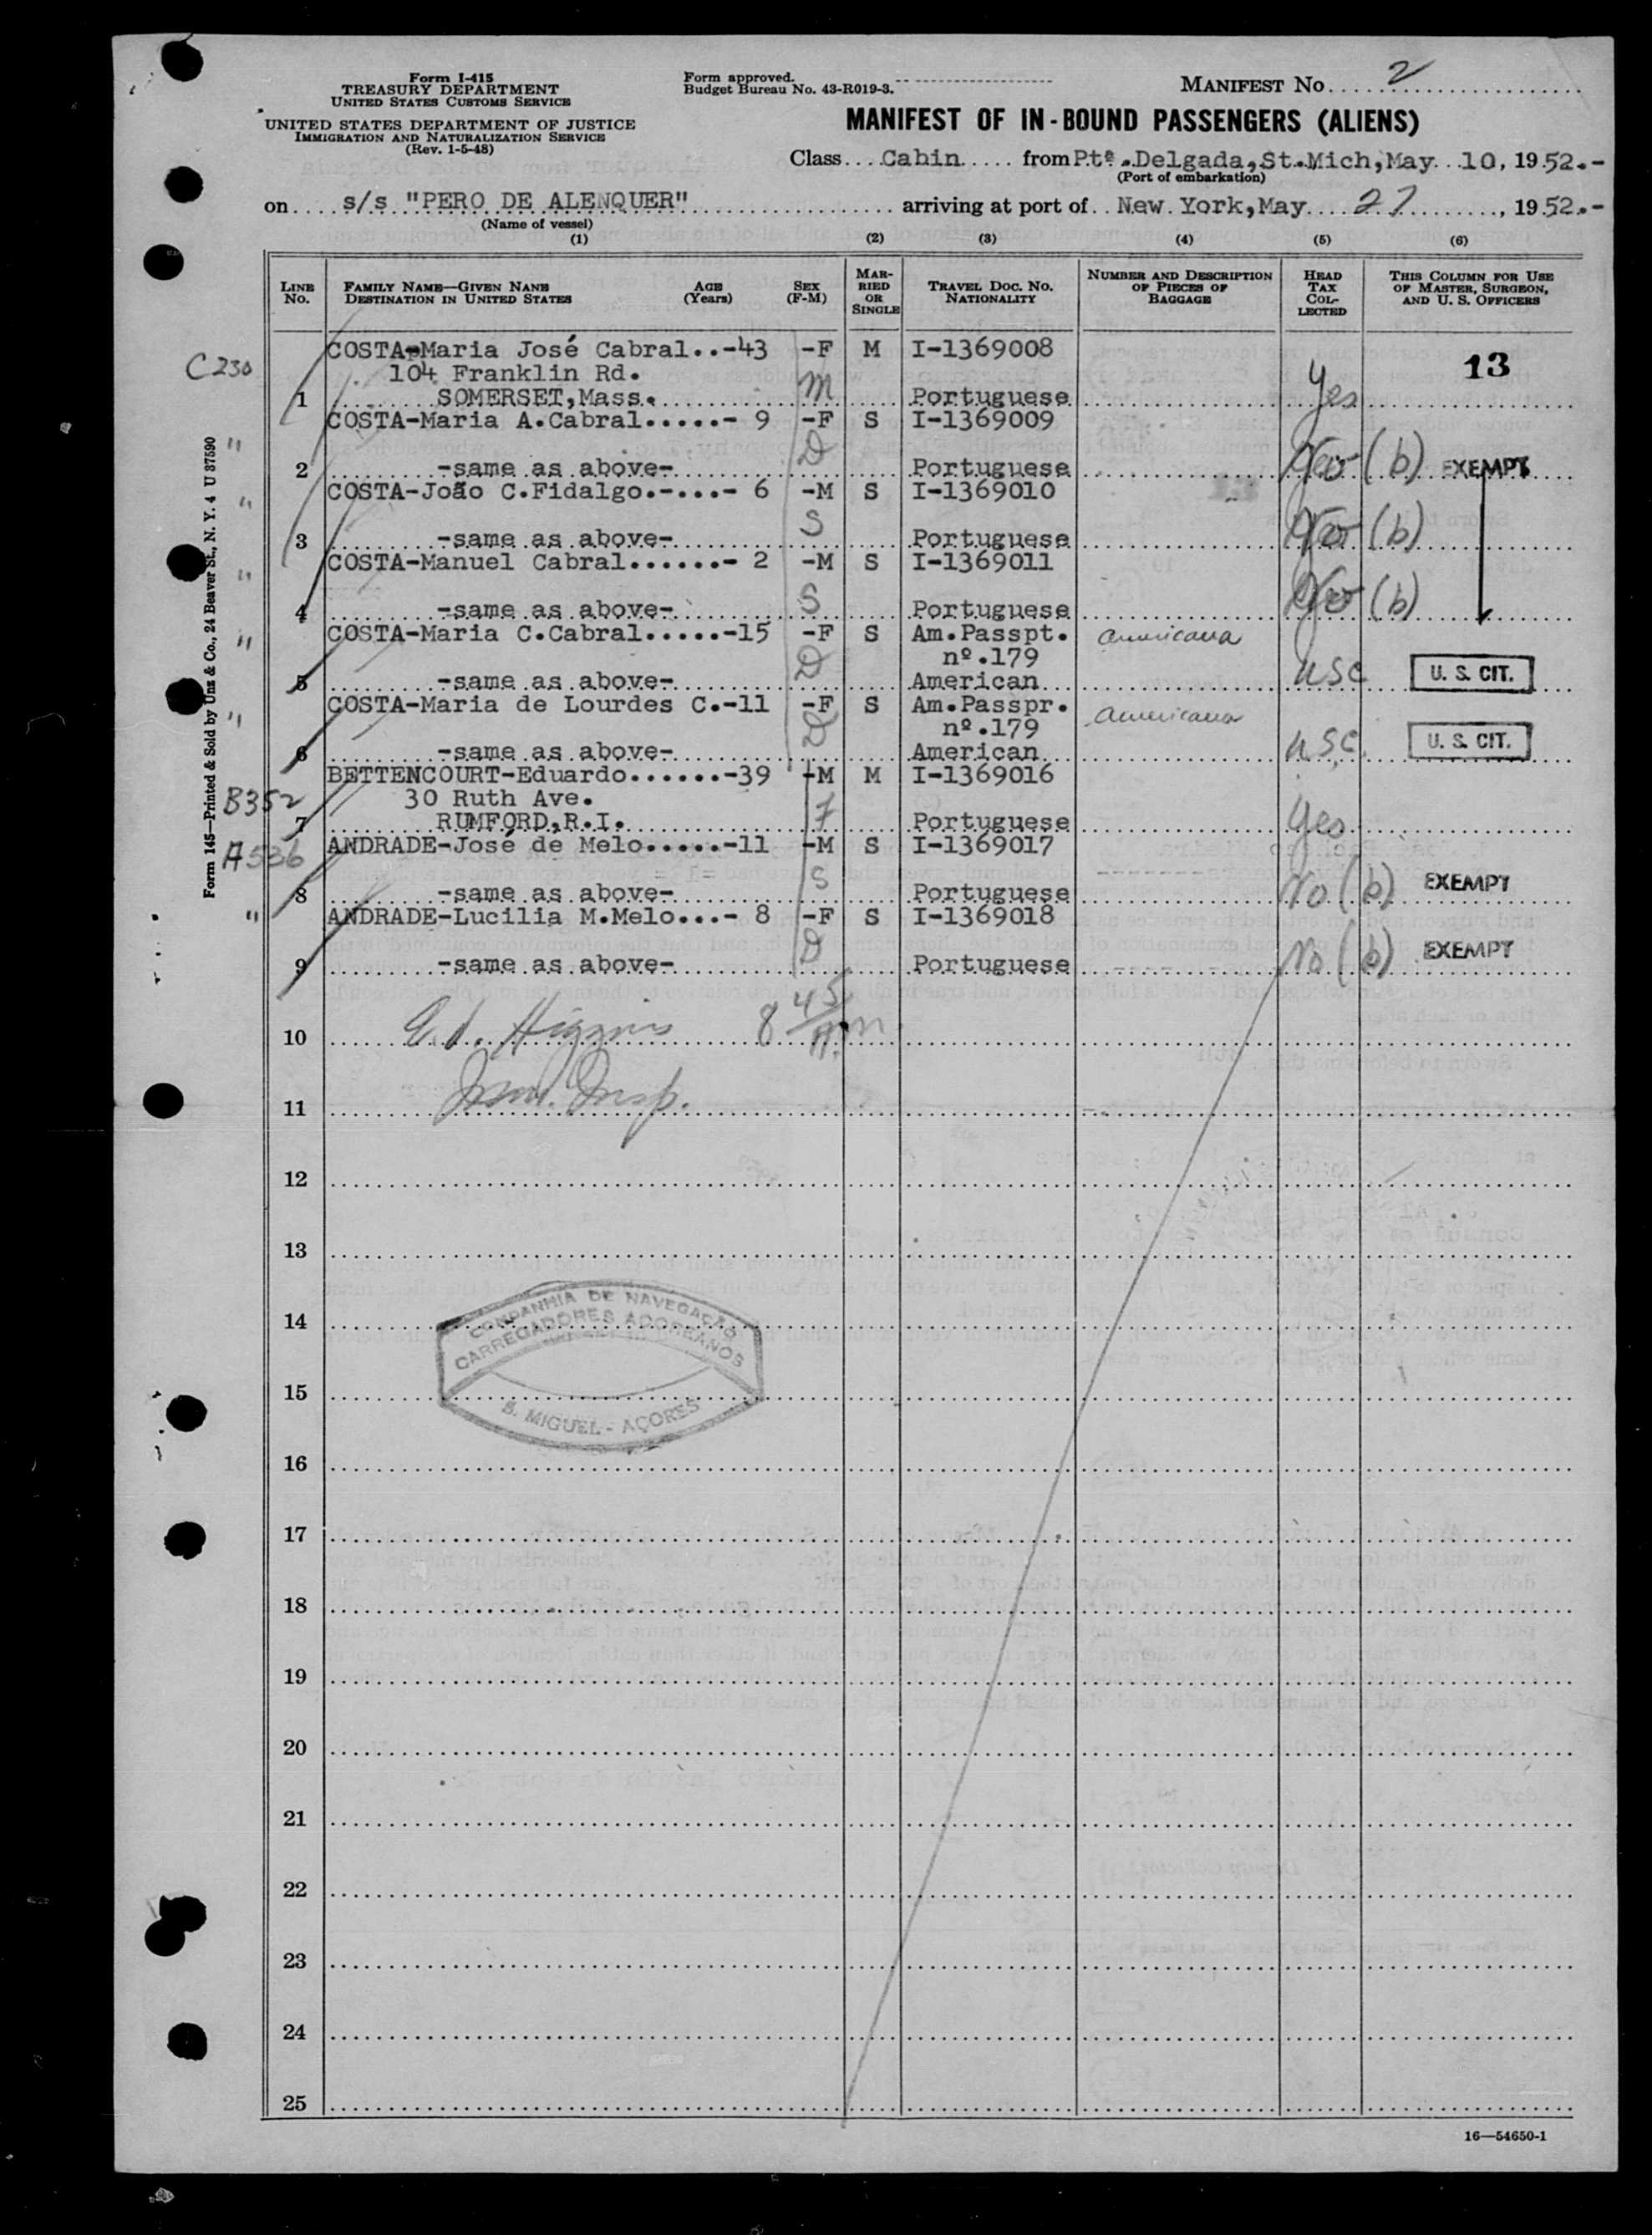 Form I-415
TREASURY DEPARTMENT
UNITED STATES CUSTOMS SERVICE
UNITED STATES DEPARTMENT OF JUSTICE
IMMIGRATION AND NATURALIZATION SERVICE
(Rev. 1-5-48)
Form approved.
Budget Bureau No. 43-R019-3.
MANIFEST No. 2
MANIFEST OF IN-BOUND PASSENGERS (ALIENS)
Class Cabin from Ptª.Delgada,St.Mich,May 10, 1952.-
(Port of embarkation)
on s/s "PERO DE ALENQUER" arriving at port of New York,May 27, 1952.-
(Name of vessel)
(1) (2) (3) (4) (5) (6)
LINE No. FAMILY NAME—GIVEN NAME DESTINATION IN UNITED STATES AGE (Years) SEX (F-M) MARRIED OR SINGLE TRAVEL DOC. NO. NATIONALITY NUMBER AND DESCRIPTION OF PIECES OF BAGGAGE HEAD TAX COLLECTED THIS COLUMN FOR USE OF MASTER, SURGEON, AND U. S. OFFICERS
COSTA-Maria José Cabral..-43 -F M I-1369008
C230 104 Franklin Rd. 13
1 SOMERSET,Mass. m Portuguese Yes
COSTA-Maria A.Cabral.....- 9 -F S I-1369009
" D
2 -same as above- Portuguese No (b) EXEMPT
COSTA-João C.Fidalgo.-...- 6 -M S I-1369010
" S
3 -same as above- Portuguese No (b)
COSTA-Manuel Cabral......- 2 -M S I-1369011
" S
4 -same as above- Portuguese No (b)
COSTA-Maria C.Cabral.....-15 -F S Am.Passpt. americana
" D nº.179
5 -same as above- American USC U. S. CIT.
COSTA-Maria de Lourdes C.-11 -F S Am.Passpr. americana
" D nº.179
6 -same as above- American USC. U. S. CIT.
BETTENCOURT-Eduardo......-39 -M M I-1369016
B352 30 Ruth Ave.
7 RUMFORD,R.I. F Portuguese Yes
A536 ANDRADE-José de Melo.....-11 -M S I-1369017
S
8 -same as above- Portuguese No (b) EXEMPT
" ANDRADE-Lucilia M.Melo...- 8 -F S I-1369018
D
9 -same as above- Portuguese No (b) EXEMPT
10 Higgins 8 45 AM
11 Imm. Insp.
12
13
14
COMPANHIA DE NAVEGAÇÃO
CARREGADORES AÇOREANOS
15
S. MIGUEL - AÇORES
16
17
18
19
20
21
22
23
24
25
16—54650-1
Form 145—Printed & Sold by Unz & Co., 24 Beaver St., N. Y. 4 U 37590